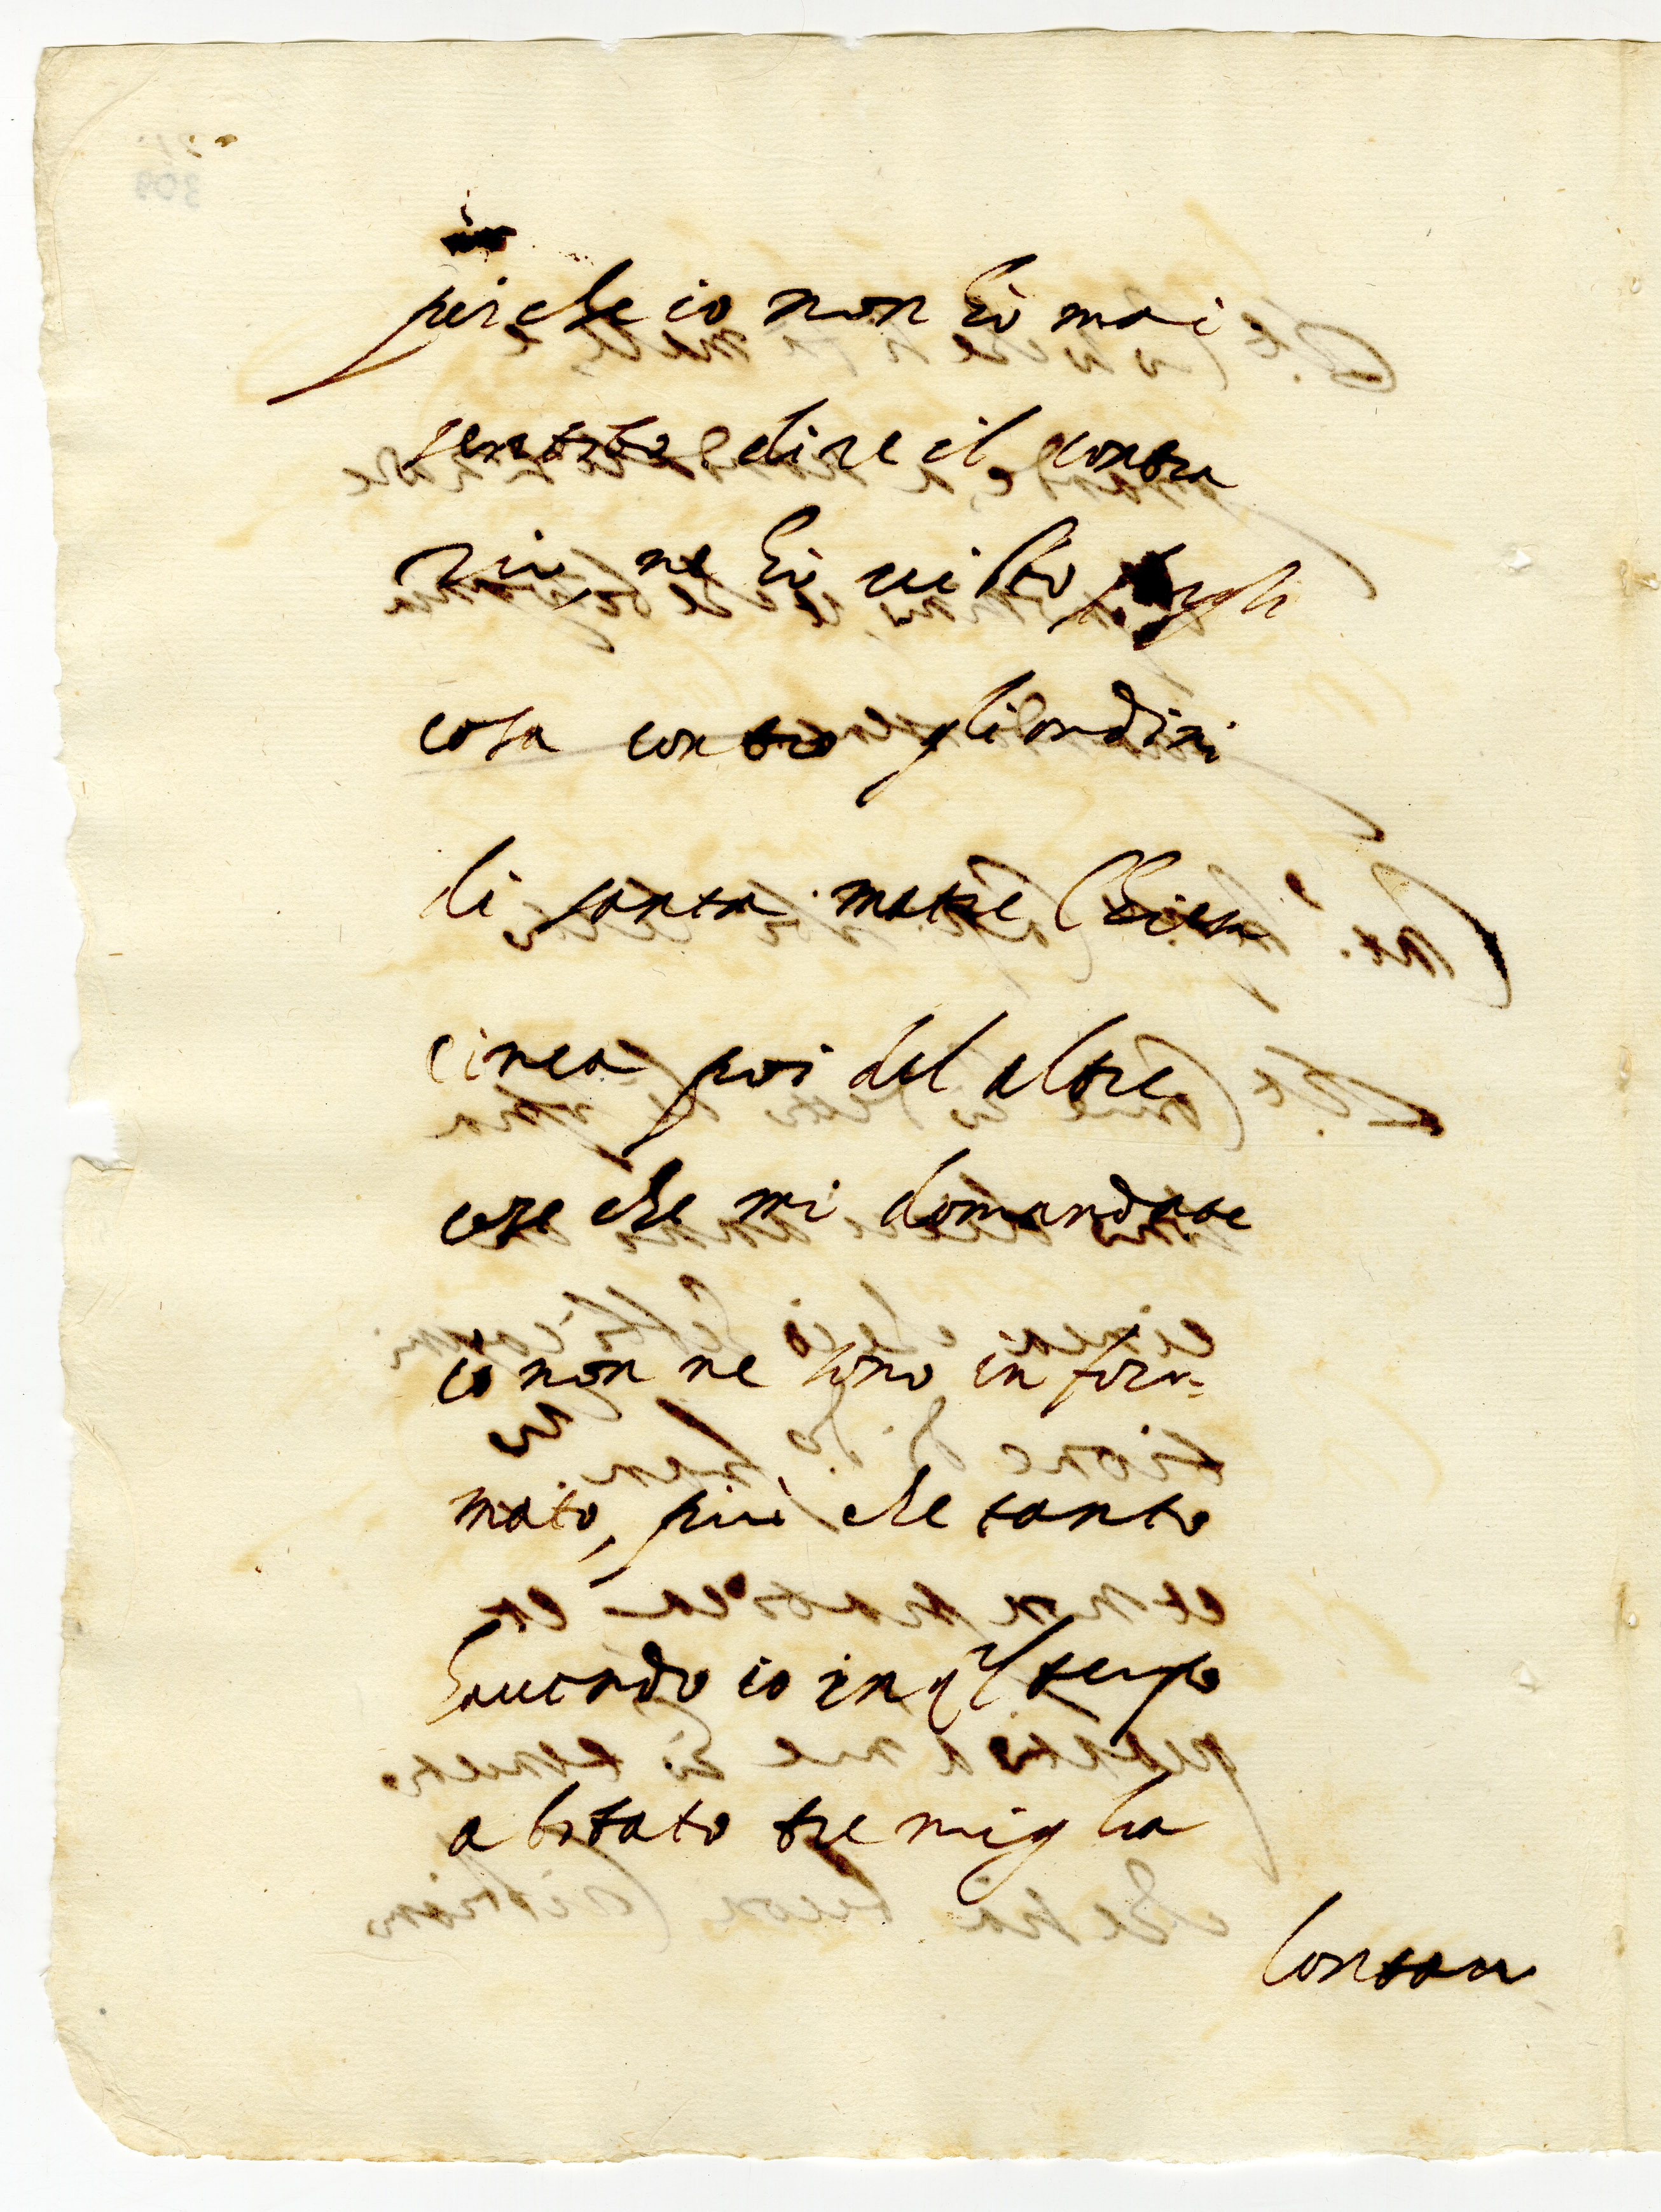 perche io non hò mai
sentito dire il contra
rio, ne hò visto
cosa contro gli ordini
di santa matre Chiesa
circa poi del altre
cose che mi domandate
io non ne sono infor=
mato, più che tanto
havendo io in ql tempo
abitato tre miglia
lontan